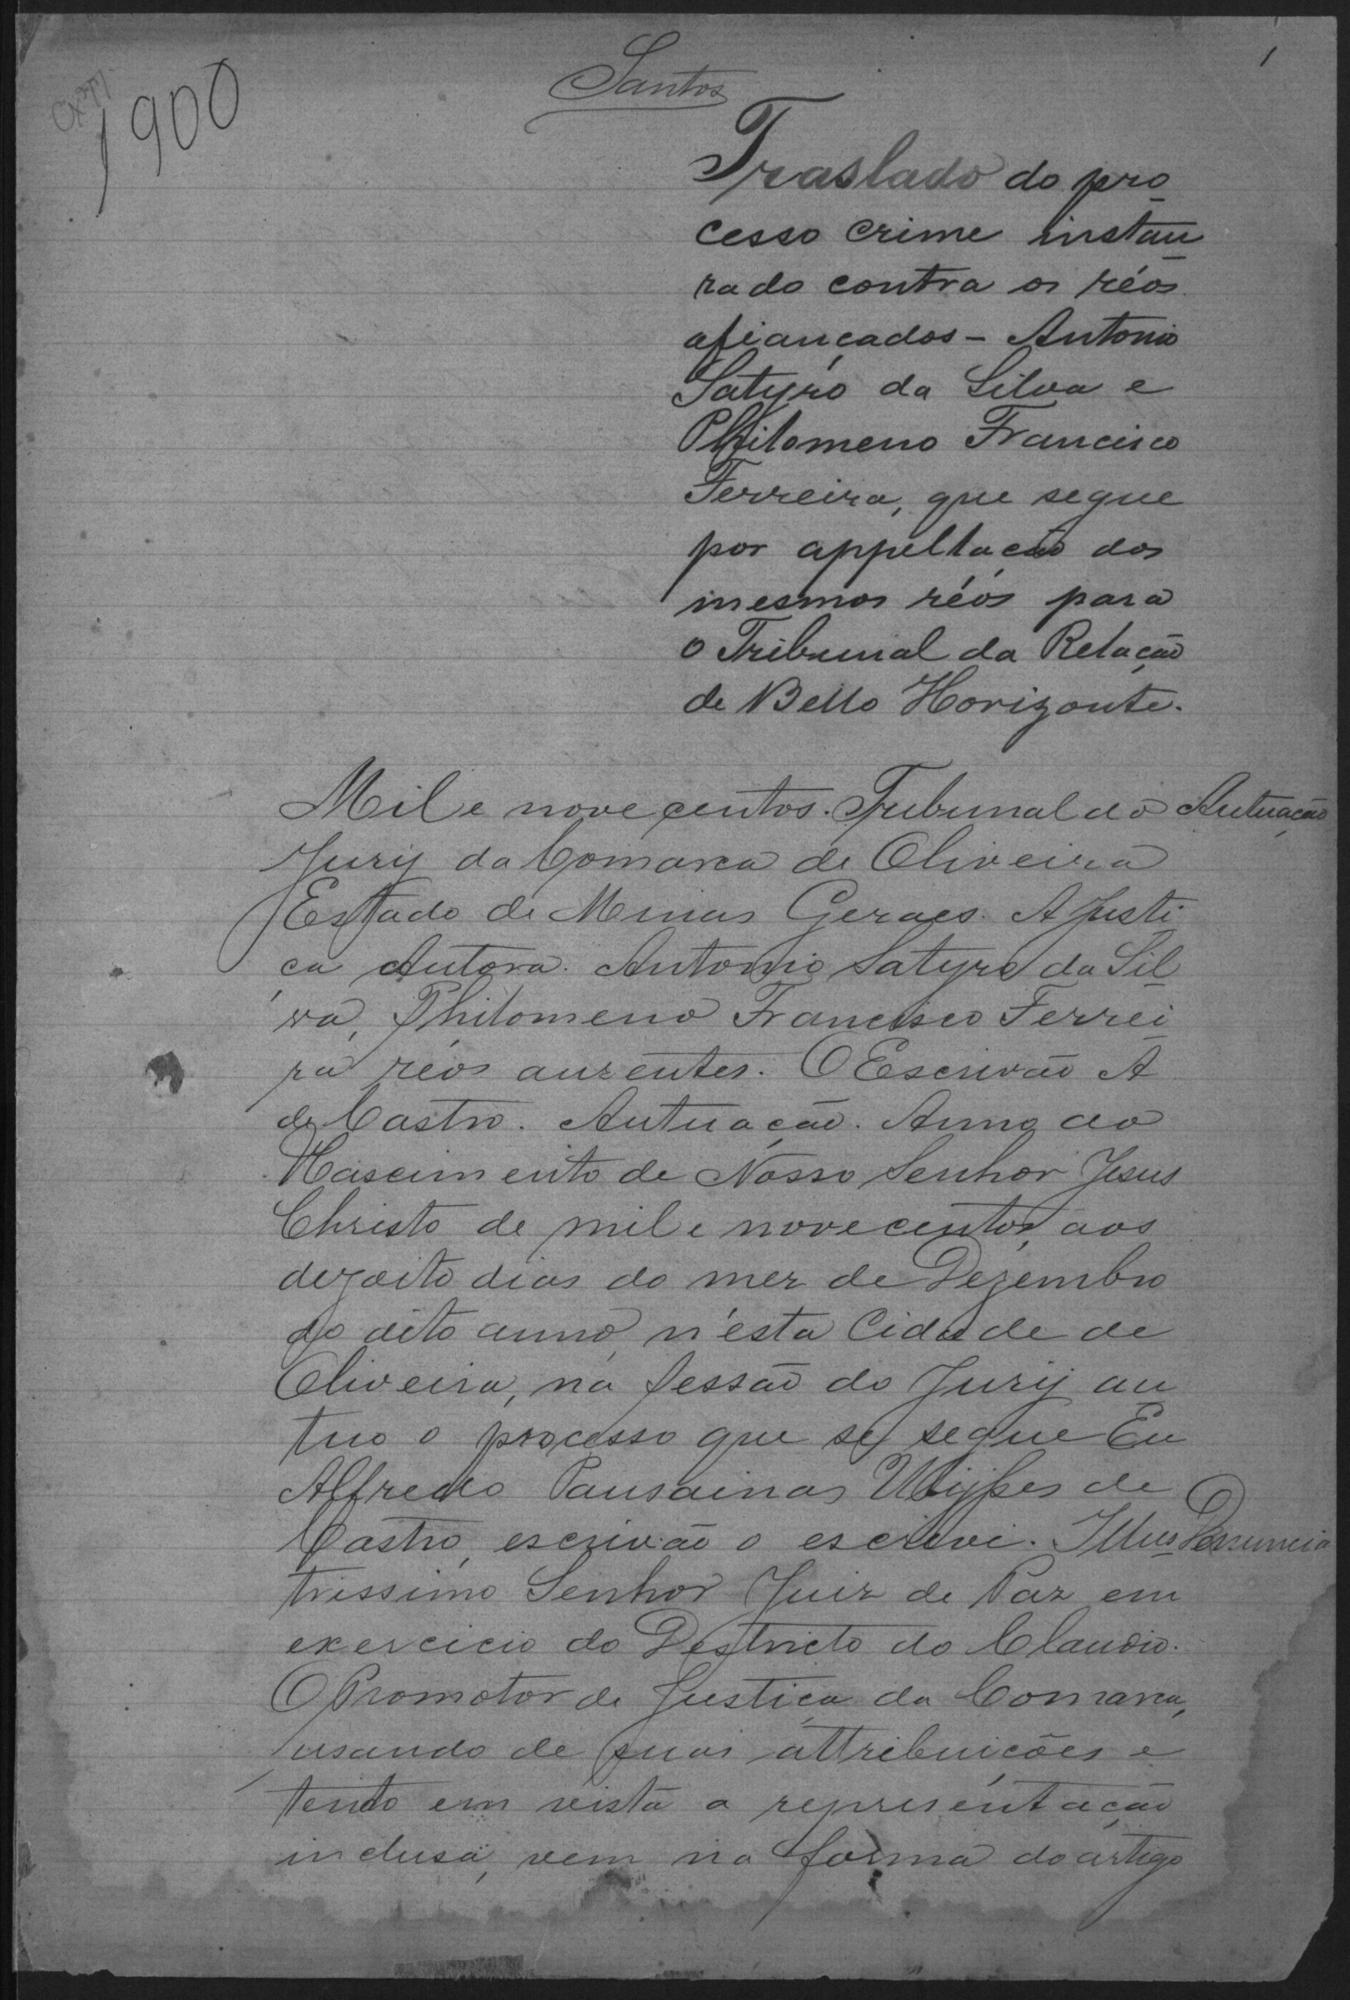 1
Santos
1900
Traslado do pro
cesso crime instau
rado contra os réos
afiançados - Antonio
Satyro da Silva e
Philomeno Francisco
Ferreira, que segue
por appellação dos
mesmos réos para
o Tribunal da Relação
de Bello Horizonte.
Mil e nove centos. Tribunal do Autuação
Jury da Comarca de Oliveira
Estado de Minas Geraes. A Justi
ça Autora. Antonio Satyro da Sil
va, Philomeno Francisco Ferrei
ra réos auzentes. O Escrivão A
de Castro. Autuação. Anno do
Nascimento de Nosso Senhor Jesus
Christo de mil e novecentos, aos
dezoito dias do mez de Dezembro
do dito anno, n'esta Cidade de
Oliveira, na Sessão do Jury au
tuo o processo que se segue Eu
Alfredo Pausainas Ulysses de
Castro, escrivão o escrevi. Illus Denuncia
trissimo Senhor Juiz de Paz em
exercicio do Destricto do Claudio.
O Promotor de Justiça da Comarca,
usando de suas attribuições e
tendo em vista a representação
inclusa, vem na forma do artigo